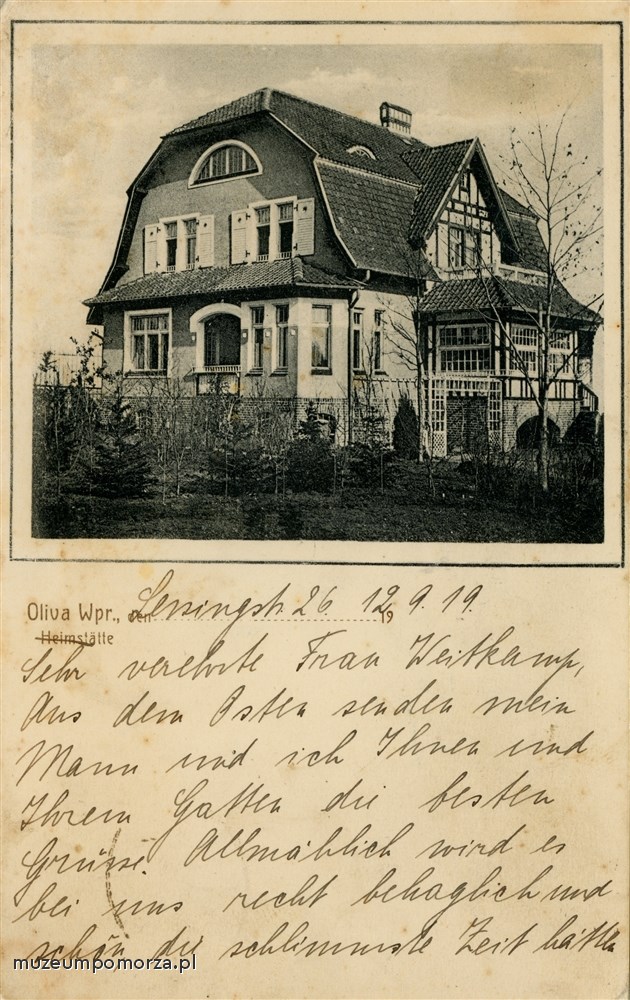 Oliva Wpr., den Lessingstr. 26. 12. 9. 19.
19
Heimstätte
Sehr verehrte Frau Weitkamp,
Aus dem Osten senden mein
Mann und ich Ihnen und
Ihrem Gatten die besten
Grüsse. Allmählich wird es
bei uns recht behaglich und
schön die schlimmste Zeit hätte
muzeumpomorza.pl